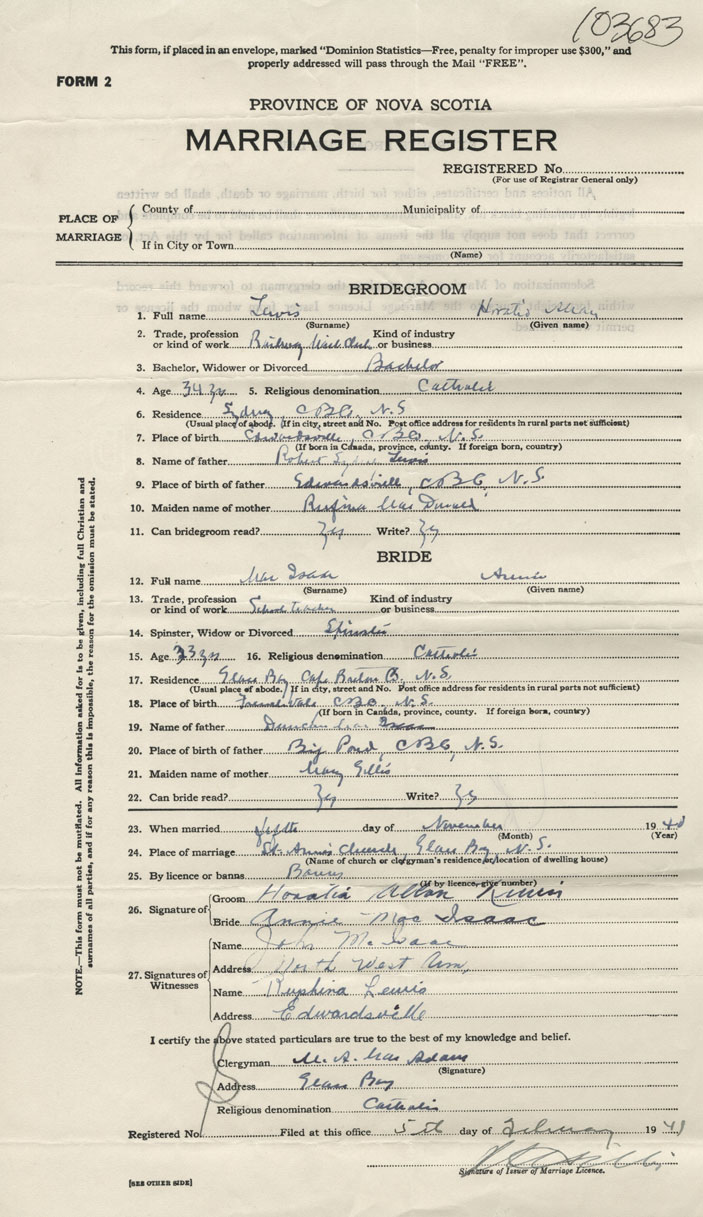 103683
This form, if placed in an envelope, marked "Dominion Statistics—Free, penalty for improper use $300," and
properly addressed will pass through the Mail "FREE".
FORM 2
PROVINCE OF NOVA SCOTIA
MARRIAGE REGISTER
REGISTERED No.
(For use of Registrar General only)
PLACE OF MARRIAGE
County of Municipality of
If in City or Town
(Name)
BRIDEGROOM
1. Full name Lewis Horatio
(Surname) (Given name)
2. Trade, profession or kind of work Railway Kind of industry or business
3. Bachelor, Widower or Divorced Bachelor
4. Age 34 yrs 5. Religious denomination Catholic
6. Residence Sydney, C B Co, N.S
(Usual place of abode. If in city, street and No. Post office address for residents in rural parts not sufficient)
7. Place of birth Edwardsville, C B Co, N.S.
(If born in Canada, province, county. If foreign born, country)
8. Name of father Robert Lewis
9. Place of birth of father Edwardsville, C B Co, N.S.
10. Maiden name of mother Rufina Mac Donald
11. Can bridegroom read? Yes Write? Yes
BRIDE
12. Full name Mac Isaac Annie
(Surname) (Given name)
13. Trade, profession or kind of work School teacher Kind of industry or business
14. Spinster, Widow or Divorced Spinster
15. Age 33 yrs 16. Religious denomination Catholic
17. Residence Glace Bay Cape Breton Co. N.S.
(Usual place of abode. If in city, street and No. Post office address for residents in rural parts not sufficient)
18. Place of birth C B Co. N.S.
(If born in Canada, province, county. If foreign born, country)
19. Name of father Duncan Mac Isaac
20. Place of birth of father Big Pond, C B Co, N.S.
21. Maiden name of mother Mary Gillis
22. Can bride read? Yes Write? Yes
23. When married day of November 1940
(Month) (Year)
24. Place of marriage St. Anne's Church Glace Bay N.S.
(Name of church or clergyman's residence or location of dwelling house)
25. By licence or banns Banns
(If by licence, give number)
26. Signature of
Groom Horatio Allan Lewis
Bride Annie Mac Isaac
27. Signatures of Witnesses
Name John McIsaac
Address North West Arm,
Name Ruphina Lewis
Address Edwardsville
I certify the above stated particulars are true to the best of my knowledge and belief.
Clergyman M. A. Mac Adam
(Signature)
Address Glace Bay
Religious denomination Catholic
Registered No. Filed at this office 5th day of February 1941
Signature of Issuer of Marriage Licence.
[SEE OTHER SIDE]
NOTE.—This form must not be mutilated. All information asked for is to be given, including full Christian and
surnames of all parties, and if for any reason this is impossible, the reason for the omission must be stated.